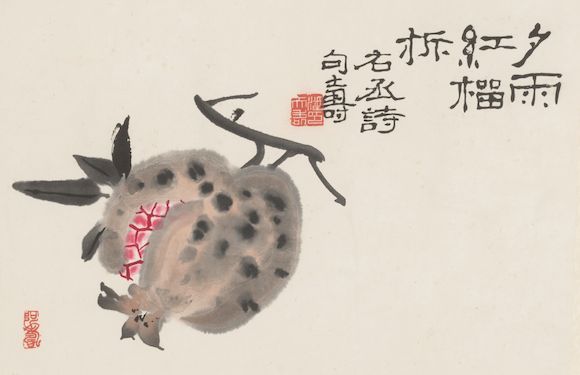 夕雨
紅榴
拆
右丞詩
句